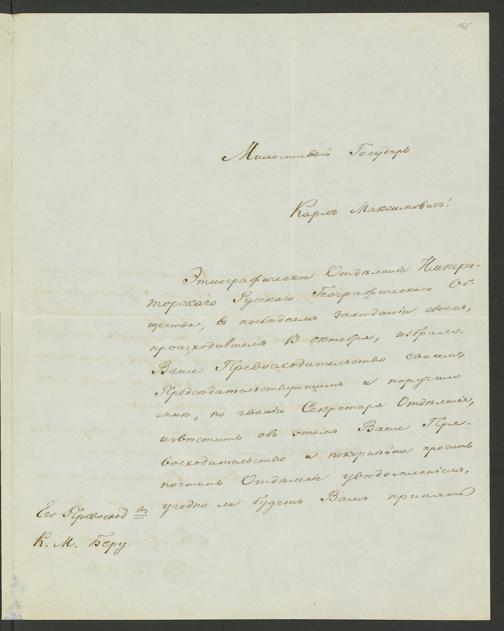 Милостивый Государь
Карлъ Максимовичъ!
Этнографическое Отдѣленіе Импера-
торскаго Русскаго Географическаго Об-
щества, въ послѣднемъ засѣданіи своемъ,
происходившемъ 13 октября, избрало
Ваше Превосходительство своимъ
Предсѣдательствующимъ и поручило
мнѣ, по званію Секретаря Отдѣленія,
извѣстить объ этомъ Ваше Пре-
восходительство и покорнѣйше просить
почтить Отдѣленіе увѣдомленіемъ,
угодно ли будетъ Вамъ принять
Его Превосход
К. М. Беру.